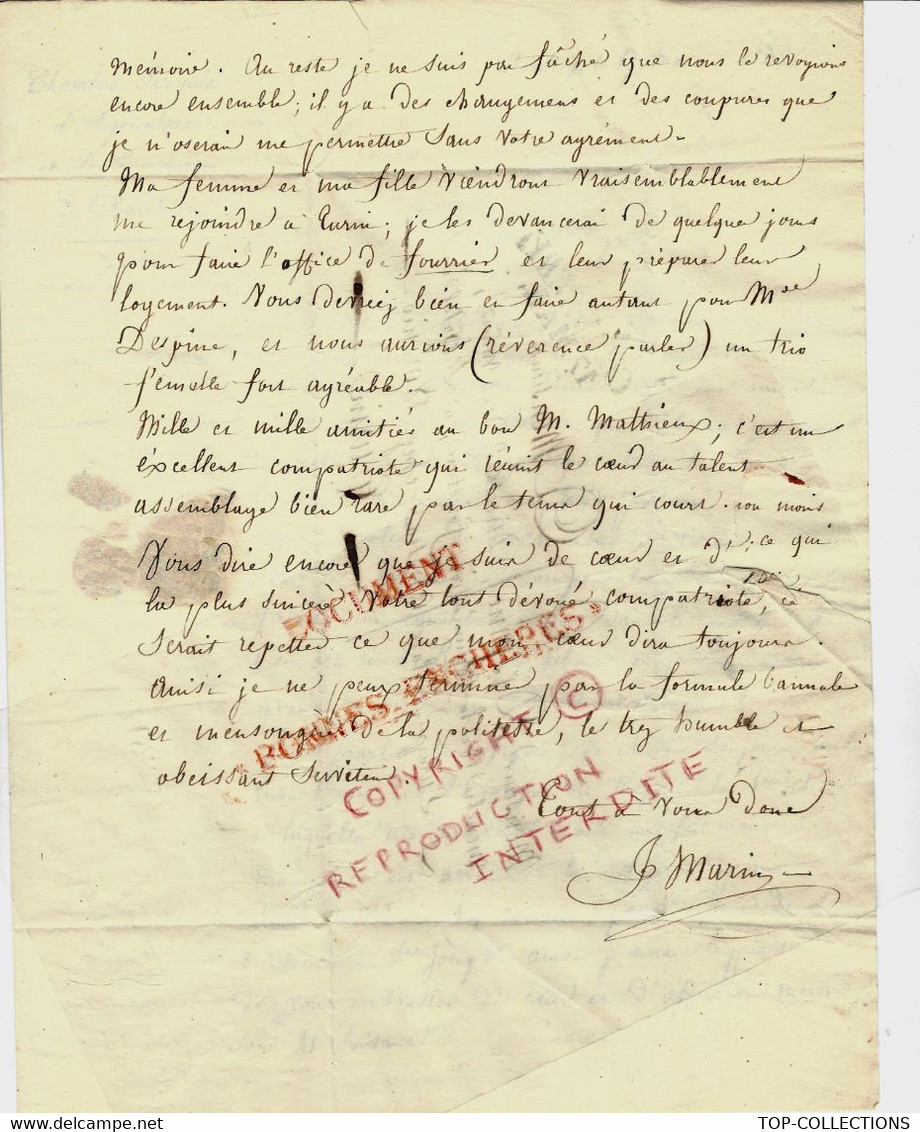 mémoire. Au reste je ne suis pas fâché que nous le revoyions
encore ensemble; il y a des changemens et des coupures que
je n'oserais me permettre sans votre agrément -
Ma femme et ma fille viendront vraisemblablement
me rejoindre à Turin; je les devancerai de quelques jours
pour faire l'office de fourrier et leur préparer leur
logement. Vous devriez bien en faire autant pour Mde
Despine, et nous aurions (révérence parler) un trio
femelle fort agréable.
Mille et mille amitiés au bon M. Mathieux; c'est un
excellent compatriote qui réunit le cœur au talent
assemblage bien rare par le tems qui court.
Vous dire encore que je suis de cœur et d' ce qui
la plus sincère votre tout dévoué compatriote, ce
serait repetter ce que mon cœur dira toujours.
Ainsi je ne peux terminer par la formule bannale
et mensongère de la politesse, le trez humble et
obeissant serviteur.
Tout à vous donc
J Marin
DOCUMENT
BONNES_ENCHERES
COPYRIGHT ©
REPRODUCTION
INTERDITE
TOP-COLLECTIONS